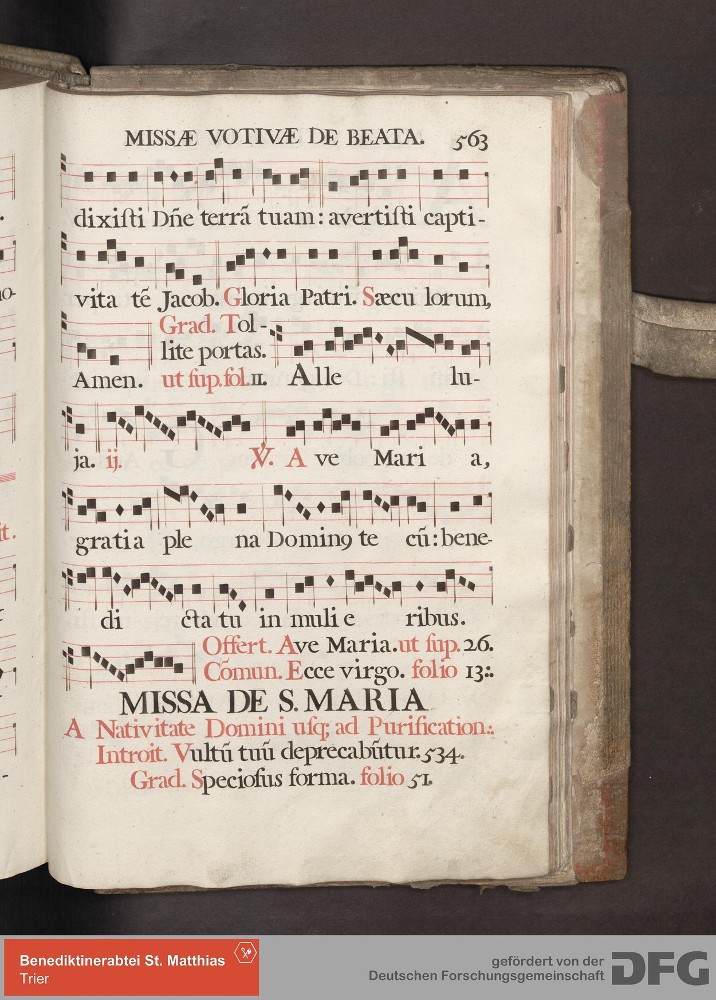 MISSÆ VOTIVÆ DE BEATA. 563
dixiſti Dñe terrã tuam: avertiſti capti-
vita tē Jacob. Gloria Patri. Sæcu lorum,
Grad. Tol-
lite portas.
Amen. ut ſup. fol. II. Alle lu-
ja. ij. ℣. A ve Mari a,
gratia ple na Dominꝯ te cũ: bene-
di cta tu in muli e ribus.
Offert. Ave Maria. ut ſup. 26.
Cõmun. Ecce virgo. folio 13:.
MISSA DE S. MARIA
A Nativitate Domini uſq; ad Purification:.
Introit. Vultũ tuũ deprecabũtur. 534.
Grad. Specioſus forma. folio 51.
it.
Benediktinerabtei St. Matthias
Trier
gefördert von der
Deutschen Forschungsgemeinschaft
DFG